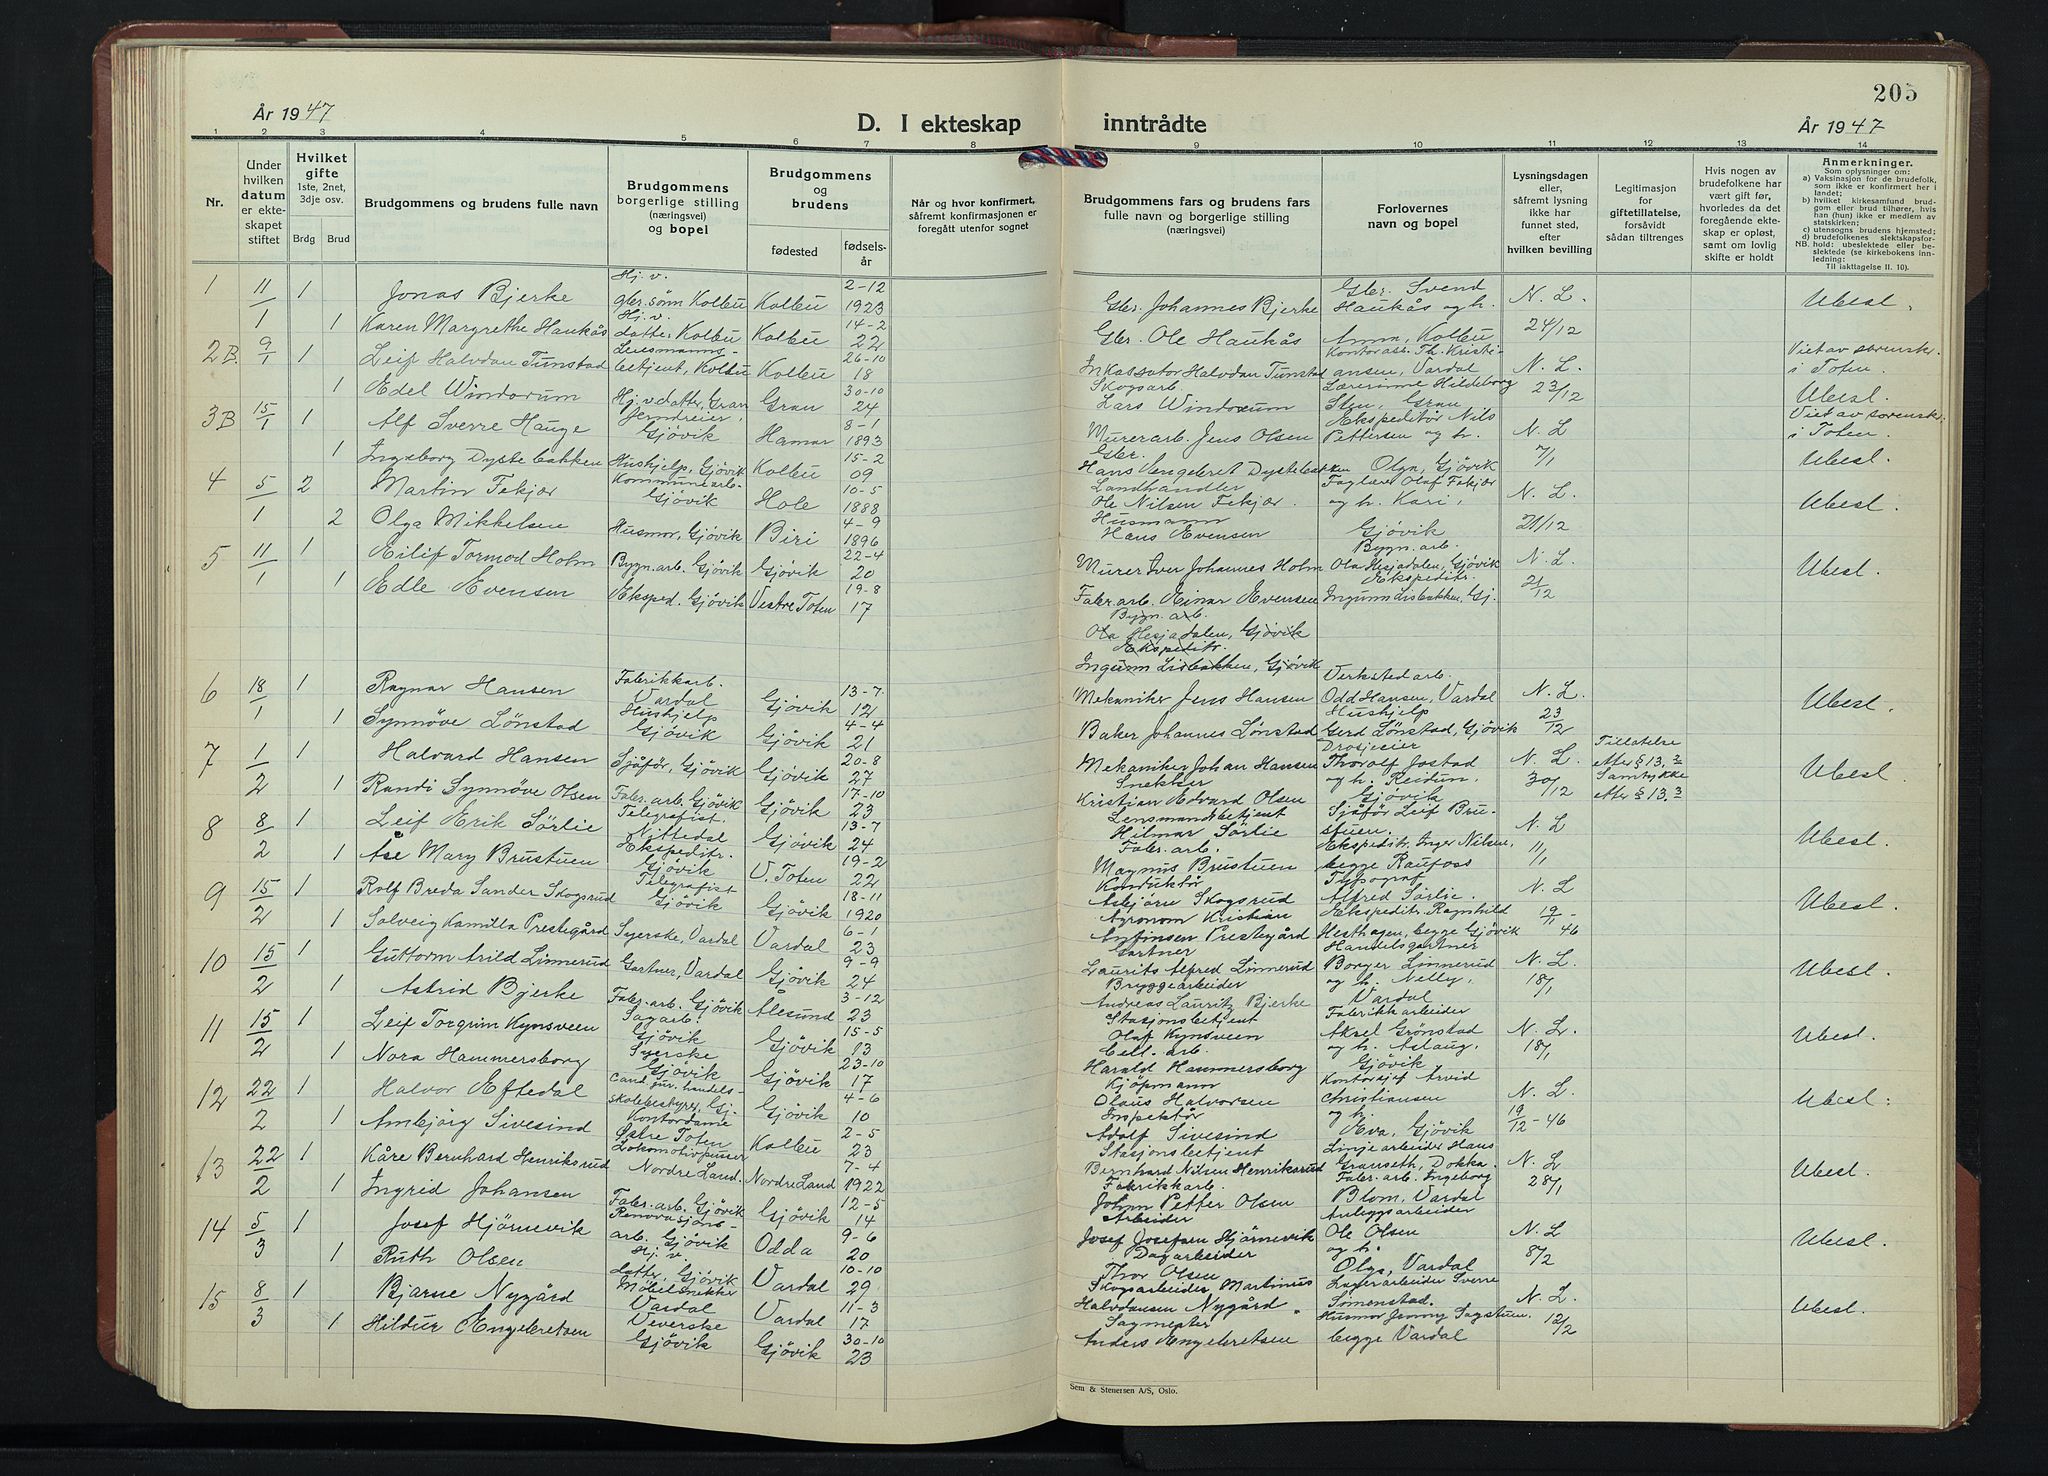 205
År 1947
D. I ekteskap
inntrådte
År 1947
1 2 3 4 5 6 7 8 9 10 11 12 13 14
Nr.
Under hvilken datum er ekteskapet stiftet
Hvilket gifte
1ste, 2net, 3dje osv.
Brdg Brud
Brudgommens og brudens fulle navn
Brudgommens borgerlige stilling (næringsvei) og bopel
Brudgommens og brudens
fødested
fødsels-år
Når og hvor konfirmert, såfremt konfirmasjonen er foregått utenfor sognet
Brudgommens fars og brudens fars fulle navn og borgerlige stilling (næringsvei)
Forlovernes navn og bopel
Lysningsdagen eller, såfremt lysning ikke har funnet sted, efter hvilken bevilling
Legitimasjon for giftetillatelse, forsåvidt sådan tiltrenges
Hvis nogen av brudefolkene har vært gift før, hvorledes da det foregående ekteskap er opløst, samt om lovlig skifte er holdt
Anmerkninger.
Som oplysninger om:
a) Vaksinasjon for de brudefolk, som ikke er konfirmert her i landet;
b) hvilket kirkesamfund brudgom eller brud tilhører, hvis han (hun) ikke er medlem av statskirken;
c) utensogns brudens hjemsted;
d) brudefolkenes slektskapsforhold: ubeslektede eller beslektede (se kirkebokens innledning:
NB.
Til iakttagelse II. 10).
1 11/1 1 Jonas Bjerke Hj. v. gbr. sønn Kolbu Kolbu 2-12 1923 Gbr. Johannes Bjerke Gbr. Svend Haukås og h. N. L. Ubesl.
1 Karen Margrethe Haukås Hj. v. datter, Kolbu Kolbu 14-2 22 Gbr. Ole Haukås Anna, Kolbu 24/12
2B. 9/1 1 Leif Halvdan Tunstad Lensmannsbetjent, Kolbu Kolbu 26-10 18 Inkassator Halvdan Tunstad Kontorass. Th. Kristiansen, Vardal N. L. Viet av sorenskr. i Toten.
1 Edel Windorum Hj. v datter, Gran Gran 30-10 24 Skogsarb. Lars Windorum Lærerinne Hildeborg Sten, Gran 23/12 Ubesl.
3B 15/1 1 Alf Sverre Hauge Jerndreier, Gjövik Hamar 8-1 1893 Murerarb. Jens Olsen Ekspeditør Nils Pettersen og h. N. L Viet av sorenskr. i Toten.
1 Ingeborg Dystebakken Hushjelp, Gjövik Kolbu 15-2 09 Gbr. Hans Engebret Dystebakken Olga, Gjövik 7/1 Ubesl.
4 5/1 2 Martin Fekjær Kommunearb. Gjövik Hole 10-5 1888 Landhandler Ole Nilsen Fekjær Faglærer Olaf Fekjær og h. Kari, N. L. Ubesl.
2 Olga Mikkelsen Husmor, Gjövik Biri 4-9 1896 Husmann Hans Evensen Gjövik 21/12
5 11/1 1 Eilif Tormod Holm Bygn. arb. Gjövik Gjövik 22-4 20 Murer Iver Johannes Holm Bygn. arb. Ola Hesjadalen, Gjövik N. L. Ubesl.
1 Edle Evensen Eksped. Gjövik Vestre Toten 19-8 17 Fabr. arb. Einar Evensen Ekspeditr. Ingunn Lisbakken, Gj. 21/12
Bygn. arb.
Ola Hesjadalen, Gjövik
Ekspeditr.
Ingunn Lisbakken, Gjövik
6 18/1 1 Ragnar Hansen Fabrikkarb. Vardal Gjövik 13-7 12 Mekaniker Jens Hansen Verksted arb. Odd Hansen, Vardal N. L. Ubesl.
1 Synnöve Lönstad Hushjelp Gjövik Gjövik 4-4 21 Baker Johannes Lönstad Hushjelp Gerd Lönstad, Gjövik 23/12
7 1/2 1 Halvard Hansen Sjåför, Gjövik Gjövik 20-8 27 Mekaniker Johan Hansen Drosjeeier Thorolf Jostad N. L. Tillatelse etter § 13, Ubesl.
1 Randi Synnöve Olsen Fabr. arb. Gjövik Gjövik 17-10 23 Snekker Kristian Edvard Olsen og h. Reidun, Gjövik 30/12 Samtykke etter § 13, 3
8 8/2 1 Leif Erik Sörlie Telegrafist. Nittedal Gjövik 13-7 24 Lensmandsbetjent Hilmar Sörlie Sjåför Leif Brustuen. N. L Ubesl.
1 Åse Mary Brustuen Ekspeditr. Gjövik V. Toten 19-2 22 Fabr. arb. Magnus Brustuen Ekspeditr. Inger Nilsen, begge Raufoss 11/1
9 15/2 1 Rolf Breda Sander Skogsrud Telegrafist Gjövik Gjövik 18-11 1920 Konduktör Asbjörn Skogsrud Typograf Alfred Sörlie. N. L Ubesl.
1 Solveig Kamilla Prestegård Syerske, Vardal Vardal 6-1 23 Agronom Kristian Antonsen Prestegård Ekspeditr. Ragnhild Hesthagen, begge Gjövik 19/1-46
10 15/2 1 Guttorm Arild Linnerud Gartner, Vardal Gjövik 9-9 24 Gartner Laurits Alfred Linnerud Handelsgartner Borger Linnerud N. L. Ubesl.
Astrid Bjerke Fabr. arb. Gjövik Ålesund 3-12 23 Bryggearbeider Andreas Lauritz Bjerke og h. Nelly, Vardal 18/1
11 15/2 1 Leif Torgrim Kynsveen Sagarb. Gjövik Gjövik 15-5 13 Stasjonsbetjent Olaf Kynsveen Fabrikkarbeider Aksel Grönstad N. L. Ubesl.
1 Nora Hammersborg Syerske Gjövik Gjövik 23-10 17 Cell. arb. Harald Hammersborg og h. Aslaug, Gjövik 18/1
12 22/2 1 Halvor Eftedal Cand. juv. handelsskolebestyrer, Gj. Gjövik 4-6 10 Kjöpmann Olaus Halvorsen Kontorsjef Arvid Christiansen N. L. Ubesl.
1 Ambjörg Sivesind Kontordame Östre Toten Kolbu 2-5 23 Inspektör Adolf Sivesind og h. Eva, Gjövik 19/12-46
13 22/2 1 Kåre Bernhard Henriksrud Lokomotivpusser Nordre Land. Nordre Land 7-4 1922 Stasjonsbetjent Bernhard Nilsen Henriksrud Linjearbeider Hans Granseth, Dokka. N. L Ubesl.
1 Ingrid Johansen Fabr. arb. Gjövik Gjövik 12-5 14 Fabrikkarb. Johan Petter Olsen Fabr. arb. Ingeborg Blom, Vardal 28/1
14 5/3 1 Josef Hjörnevik Renovasjonsarb. Gjövik Odda 9-6 20 Arbeider Josef Josefsen Hjörnevik Anleggsarbeider Ole Olsen N. L Ubesl.
1 Ruth Olsen Hj. v datter, Gjövik Vardal 10-10 29 Dagarbeider Thor Olsen og h. Olga, Vardal 8/2
15 8/3 1 Bjarne Nygård Möbelsnekker Vardal Vardal 11-3 17 Skogsarbeider Martinus Halvdansen Nygård Lagerarbeider Sverre Sömenstad. N. L. Ubesl.
1 Hildur Engebretsen Veverske Gjövik Gjövik 30-10 23 Sagmester Anders Engebretsen Husmor Jenny Sagstuen, begge Vardal 12/2
Sem & Stenersen A/S, Oslo.